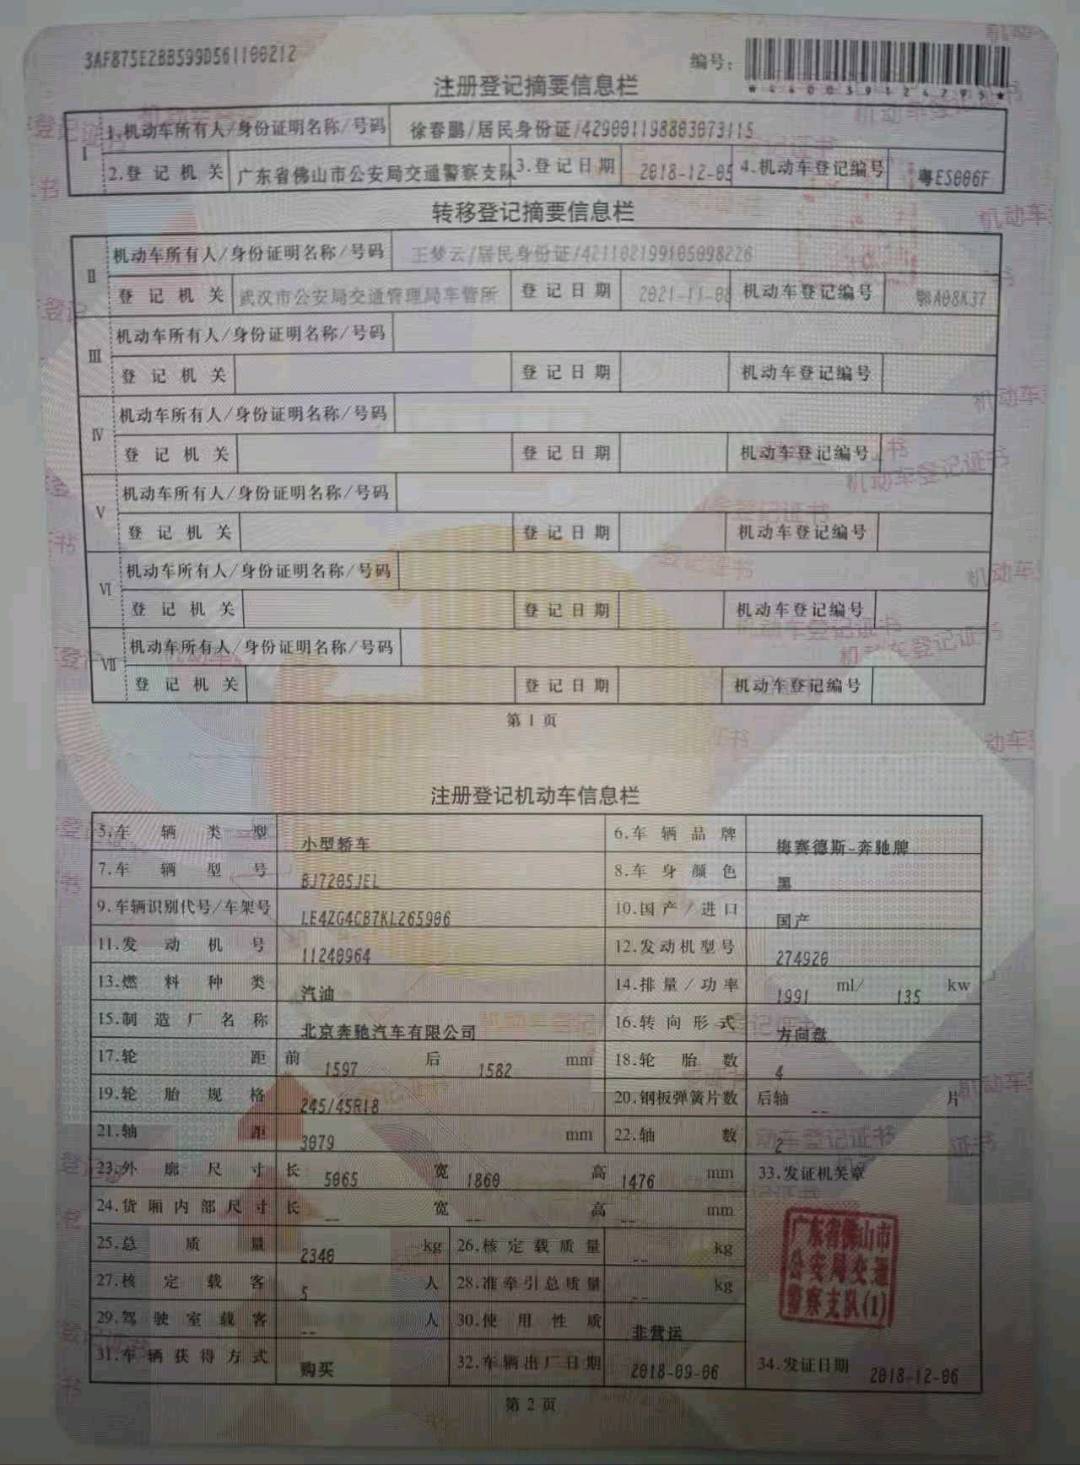 3AF875E2BB599D561100212
编号:
*440039124295*
注册登记摘要信息栏
I 1.机动车所有人/身份证明名称/号码 徐春鹏/居民身份证/429001198803073115
2.登记机关 广东省佛山市公安局交通警察支队 3.登记日期 2018-12-05 4.机动车登记编号 粤ES006F
转移登记摘要信息栏
II 机动车所有人/身份证明名称/号码 王梦云/居民身份证/421102199105098226
登记机关 武汉市公安局交通管理局车管所 登记日期 2021-11-08 机动车登记编号 鄂A08K37
III 机动车所有人/身份证明名称/号码
登记机关 登记日期 机动车登记编号
IV 机动车所有人/身份证明名称/号码
登记机关 登记日期 机动车登记编号
V 机动车所有人/身份证明名称/号码
登记机关 登记日期 机动车登记编号
VI 机动车所有人/身份证明名称/号码
登记机关 登记日期 机动车登记编号
VII 机动车所有人/身份证明名称/号码
登记机关 登记日期 机动车登记编号
第1页
注册登记机动车信息栏
5.车辆类型 小型轿车 6.车辆品牌 梅赛德斯-奔驰牌
7.车辆型号 BJ7205JEL 8.车身颜色 黑
9.车辆识别代号/车架号 LE4ZG4CB7KL265906 10.国产/进口 国产
11.发动机号 11240964 12.发动机型号 274920
13.燃料种类 汽油 14.排量/功率 1991 ml/ 135 kw
15.制造厂名称 北京奔驰汽车有限公司 16.转向形式 方向盘
17.轮距 前 1597 后 1582 mm 18.轮胎数 4
19.轮胎规格 245/45R18 20.钢板弹簧片数 后轴 -- 片
21.轴距 3079 mm 22.轴数 2
23.外廓尺寸 长 5065 宽 1860 高 1476 mm 33.发证机关章
24.货厢内部尺寸 长 -- 宽 -- 高 -- mm
25.总质量 2340 kg 26.核定载质量 -- kg
27.核定载客 5 人 28.准牵引总质量 -- kg
广东省佛山市
公安局交通
警察支队(1)
29.驾驶室载客 -- 人 30.使用性质 非营运
31.车辆获得方式 购买 32.车辆出厂日期 2018-09-06 34.发证日期 2018-12-06
第2页